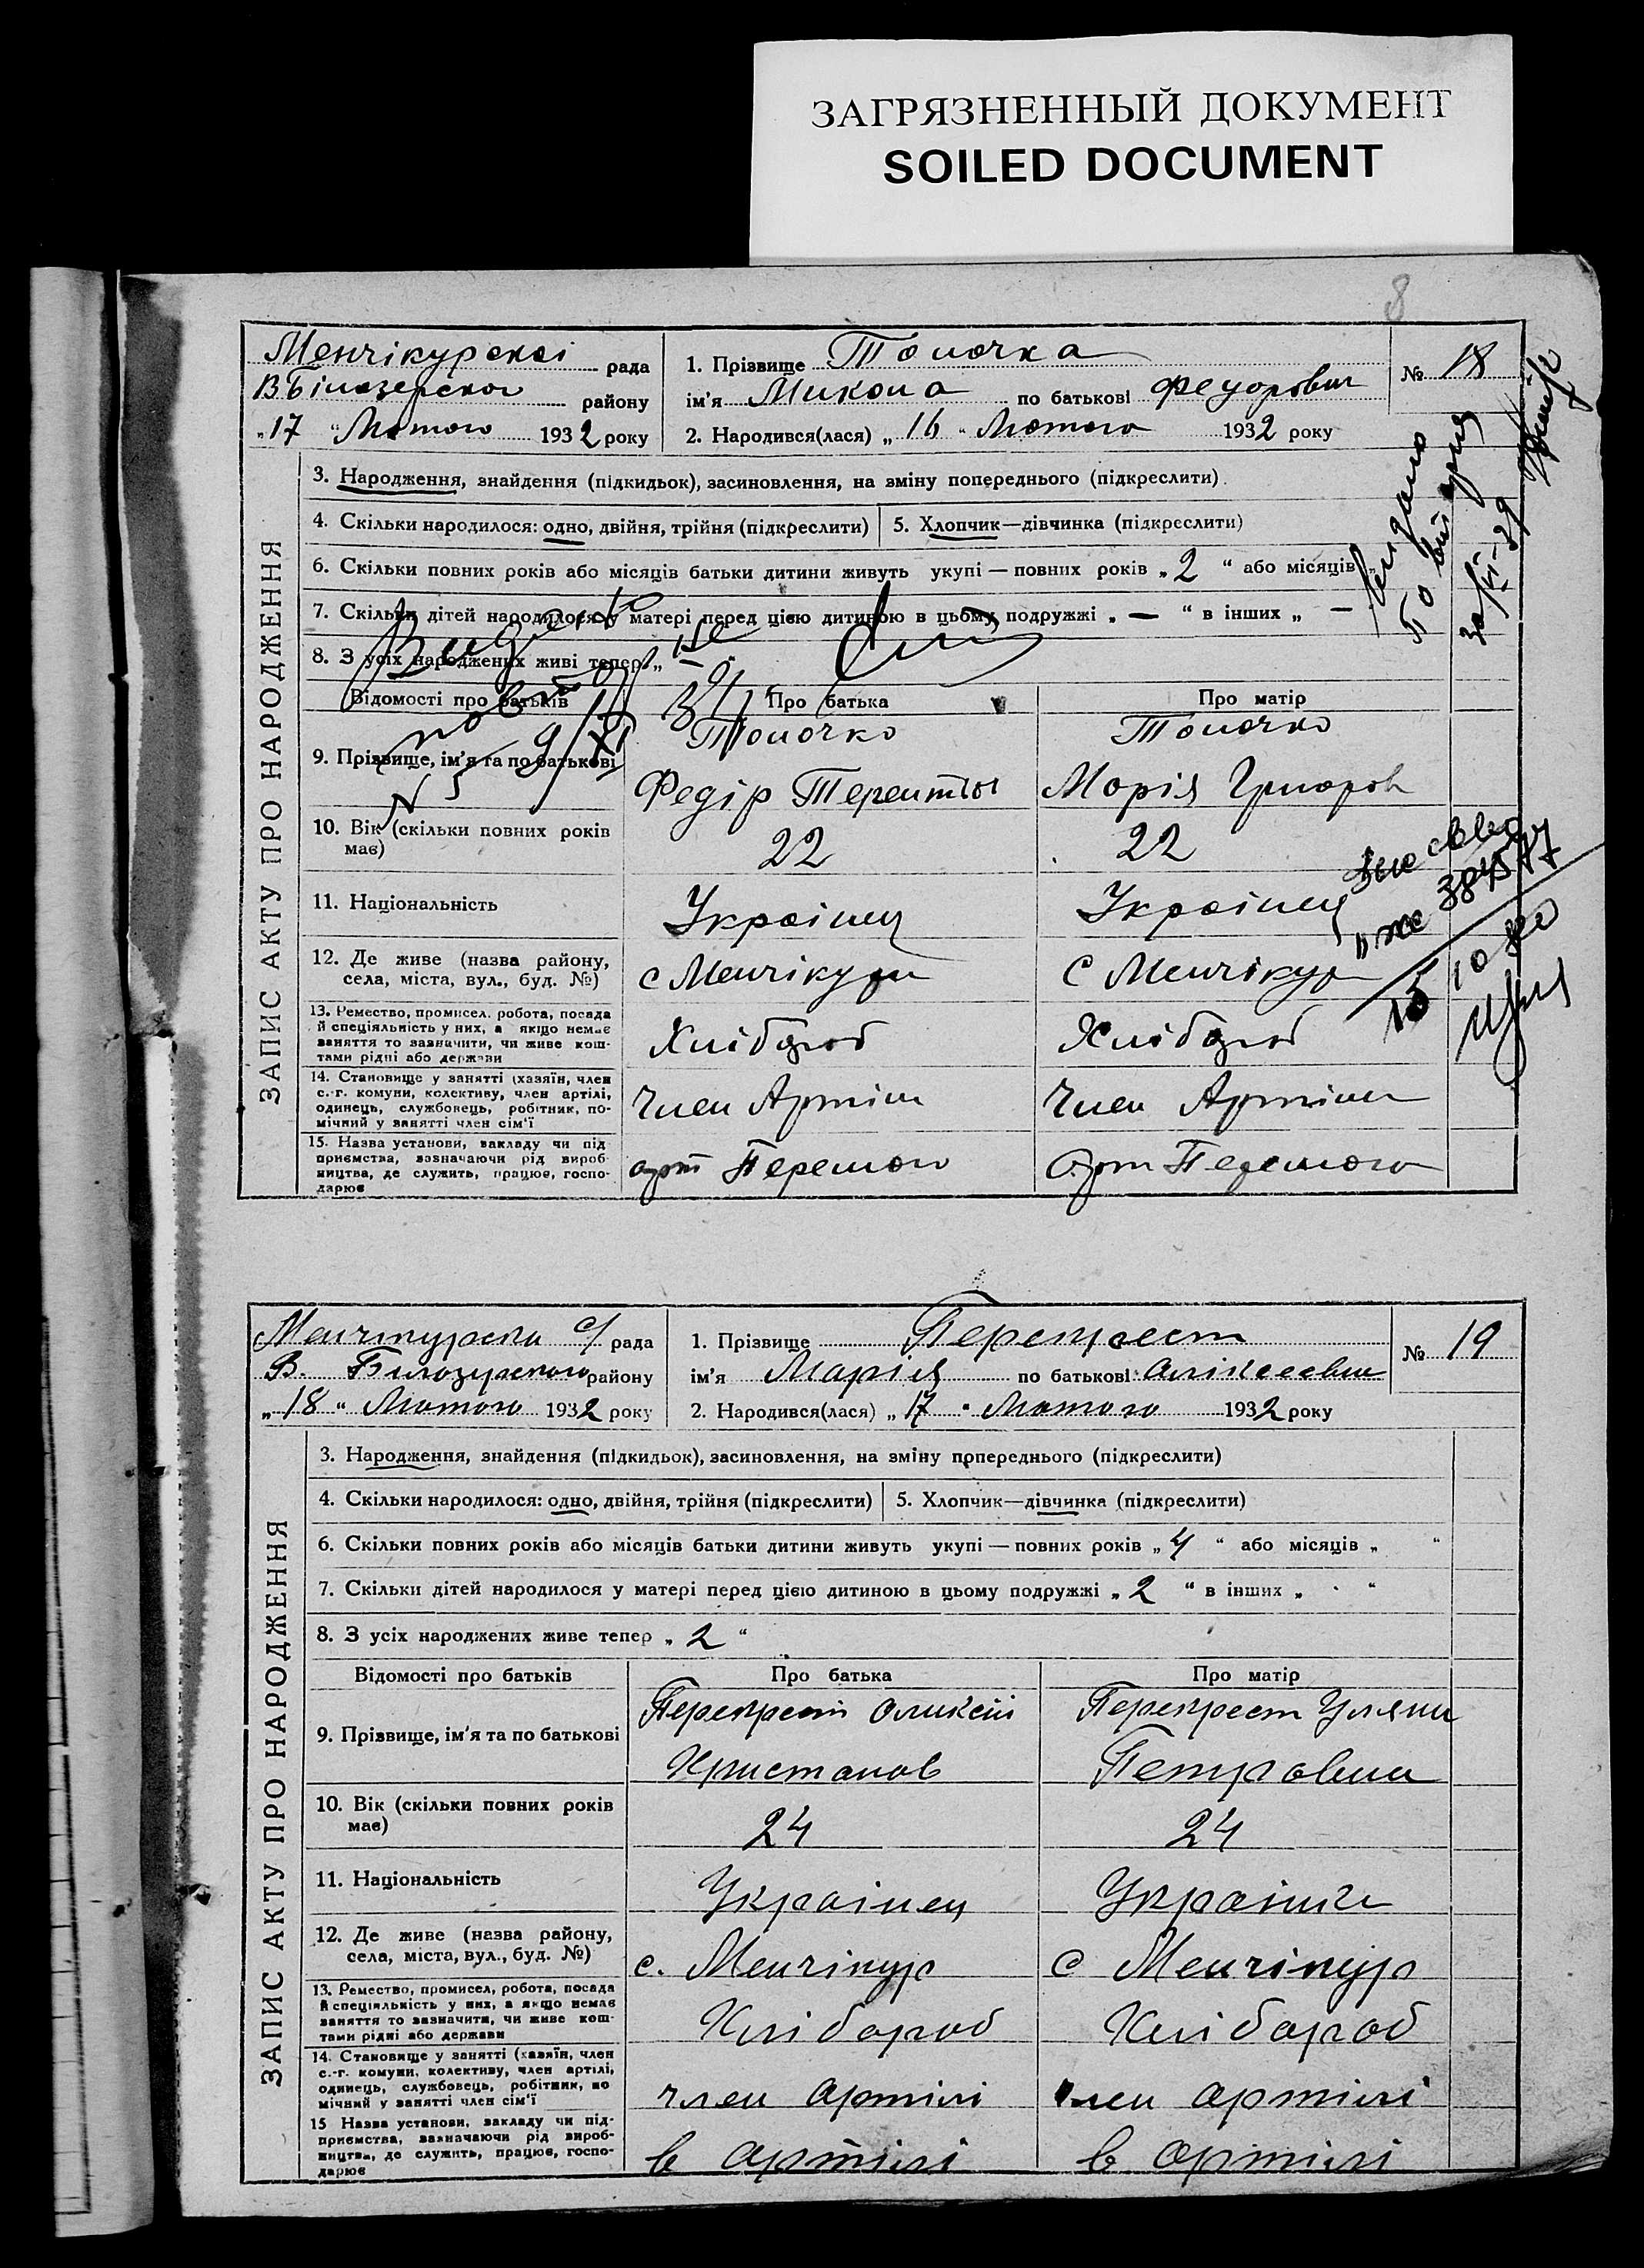 ЗАГРЯЗНЕННЫЙ ДОКУМЕНТ
SOILED DOCUMENT
8
ЗАПИС АКТУ ПРО НАРОДЖЕННЯ
Менчікурскої рада
В Білозерског району
„17 “ Лютого 1932 року
1. Прізвище Толочка
ім'я Микола по батькові Федорович
2. Народився(лася) „ 16 “ Лютого 1932 року
№ 18
3. Народження, знайдення (підкидьок), засиновлення, на зміну попереднього (підкреслити)
4. Скільки народилося: одно, двійня, трійня (підкреслити) 5. Хлопчик—дівчинка (підкреслити)
6. Скільки повних років або місяців батьки дитини живуть укупі — повних років „ 2 “ або місяців „
7. Скільки дітей народилося у матері перед цією дитиною в цьому подружжі „ — “ в інших „ —
8. З усіх народжених живі тепер „ — “
Відомості про батьків Про батька Про матір
9. Прізвище, ім'я та по батькові
Толочко Толочко
Федір Терентьї Марія Григоров
10. Вік (скільки повних років має) 22 22
11. Національність Україниц Україниц
12. Де живе (назва району, села, міста, вул., буд. №) с Менчікури С Менчікур
13. Ремество, промисел, робота, посада
й спеціяльність у них, а якщо немає
заняття то зазначити, чи живе кош-
тами рідні або держави
Хлібороб Хлібороб
14. Становище у занятті (хазяїн, член
с.-г. комуни, колективу, член артілі,
одинець, службовець, робітник, по-
мічний у занятті член сім'ї
Член Артіли Член Артіли
15. Назва установи, закладу чи під
приємства, зазначаючи рід вироб
ництва, де служить, працює, госпо-
дарює
арт Перемого Арт Перемога
ЗАПИС АКТУ ПРО НАРОДЖЕННЯ
Менчикурски с/ рада
В. Билозурского району
„ 18 “ Лютого 1932 року
1. Прізвище Перекрест
ім'я Марія по батькові Аліксеевна
2. Народився(лася) „ 17 “ Лютого 1932 року
№ 19
3. Народження, знайдення (підкидьок), засиновлення, на зміну попереднього (підкреслити)
4. Скільки народилося: одно, двійня, трійня (підкреслити) 5. Хлопчик—дівчинка (підкреслити)
6. Скільки повних років або місяців батьки дитини живуть укупі — повних років „ 4 “ або місяців „ “
7. Скільки дітей народилося у матері перед цією дитиною в цьому подружжі „ 2 “ в інших „ “
8. З усіх народжених живе тепер „ 2 “
Відомості про батьків Про батька Про матір
9. Прізвище, ім'я та по батькові
Перекрест Оликсій Перекрест Уляна
Христанов Петровна
10. Вік (скільки повних років має) 24 24
11. Національність Українец Українка
12. Де живе (назва району, села, міста, вул., буд. №) с. Менчікур с Менчікур
13. Ремество, промисел, робота, посада
й спеціяльність у них, а якщо немає
заняття то зазначити, чи живе кош-
тами рідні або держави
Хлібороб Хлібороб
14. Становище у занятті (хазяїн, член
с.-г. комуни, колективу, член артілі,
одинець, службовець, робітник, по
мічний у занятті член сім'ї
член артілі член артілі
15 Назва установи, закладу чи під-
приємства, зазначаючи рід вироб-
ництва, де служить, працює, госпо-
дарює
в артілі в артілі